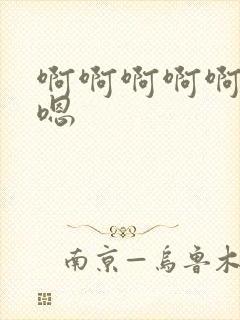 啊啊啊啊啊
嗯
南京—乌鲁木